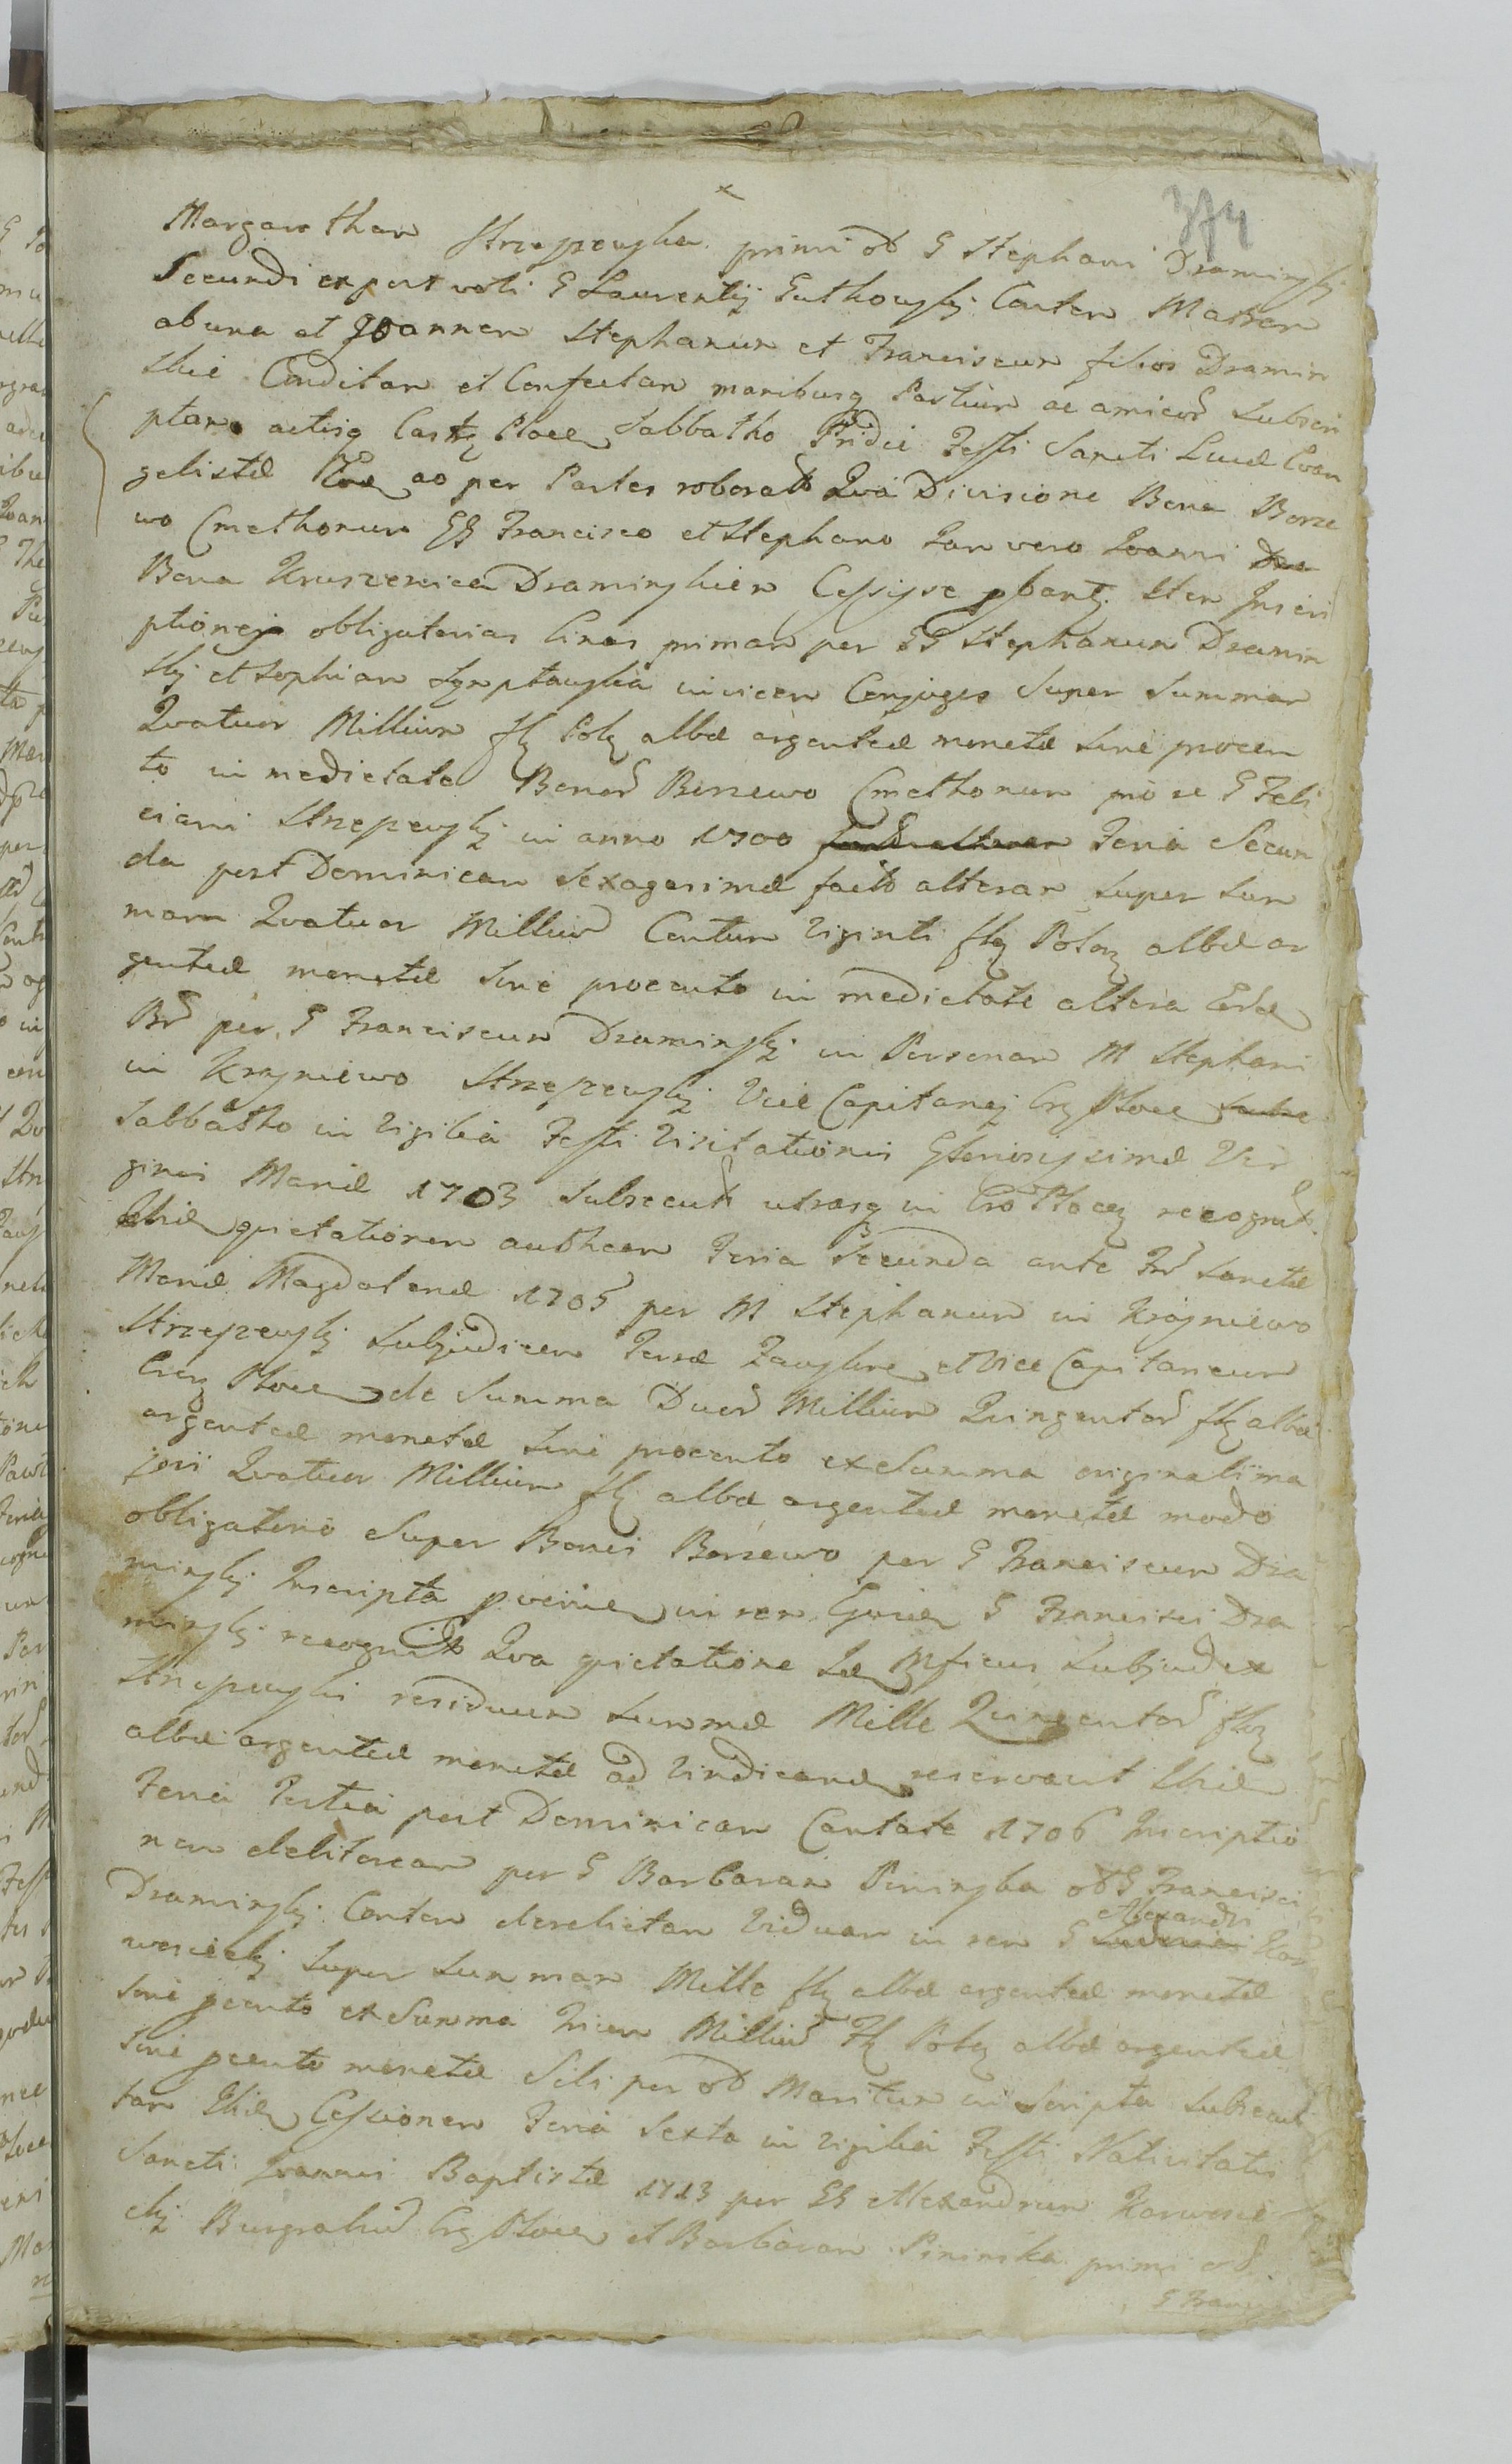 374
Margaretham Strzeszewska primi od G Stephani Draminsky
Secundi expost voti G Laurentij Guthowsky Consten Matrem
ab una et Joannem Stephanum et Franciscum filios Dramin
skie Conditam et Confectam manibusq Partium ac amicor Subscri
ptam actisq Castr Ploce Sabbatho Pridie Festi Sancti Lucæ Evan
gelistæ ao per Partes roborat Qva Divisione Bona Borze
wo Cmethonum GG Francisco et Stephano Jan vero Joanni Dra
Bona Kruszenica Draminskich Cessisse pbant. Item Inscri
ptiones obligatorias binas primam per GG Stephanum Dramin
sky et Sophiam invicem Conjuges Super Summam
Qvatuor Millium fl Pol albæ argenteæ monetæ sine procen
to in medietate Bonor Borzewo Cmethonum pro re G Feli
ciani Strzeszewsky in anno 1700 Feria Secun
da post Dominicam Sexagesimæ facto alteram super Sum
mam Qvatuor Milliu Centum Viginti fl Polon albæ ar
genteæ monetæ sine procento in medietate altera
Br per G Franciscum Draminsky in Personam M Stephani
in Krayniewo Strzeszewsky Vice Capitanej Cr Ploce
Sabbatho in Vigilia Festi Visitationis Gloriosissimæ Vir
ginis Mariæ 1703 Subsecut utrasq in Cro Plocen recognit
quietationem authcam Feria Secunda ante Fst Sanctæ
Mariæ Magdalenæ 1705 per M Stephanum in Krayniewo
Strzeszewsky Subjudicem Terræ Zawskrze et Vice Capitaneum
Cren Ploce de Summa Duor Millium Qvingentor fl albæ
argenteæ monetæ sine procento ex Summa originali ma
jori Qvatuor Millium fl albæ argenteæ monetæ modo
obligatorio Super Bonis Borzewo per G Franciscum Dra
minsky Inscripta in rem G Francisci Dra
minsky recognit Qva quietatione Mficus Subjudex
Strzeszewski residuum Summæ Mille Qvingentor flor
albæ argenteæ monetæ ad Vindicand reservavit
Feria Tertia post Dominicam Cantate 1706 Inscriptio
nem debitoream per G Barbaram Pininska od G Francisci
Draminsky Consten derelictam Viduam in rem G Alexandri Kar
wosiecky Super Summam Mille fl albæ argenteæ monetæ
sine pcento ex Summa Trium Milliu Fl Polon albæ argenteæ
sine pcento monetæ Sibi per od Maritum inscripta Subsecu
tam Cessionem Feria Sexta in Vigilia Festi Nativitatis
Sancti Joannis Baptistæ 1713 per GG Alexandrum Karwosie
cky Burgrabiu Cr Ploce et Barbaram Pininska primi od
G Francis